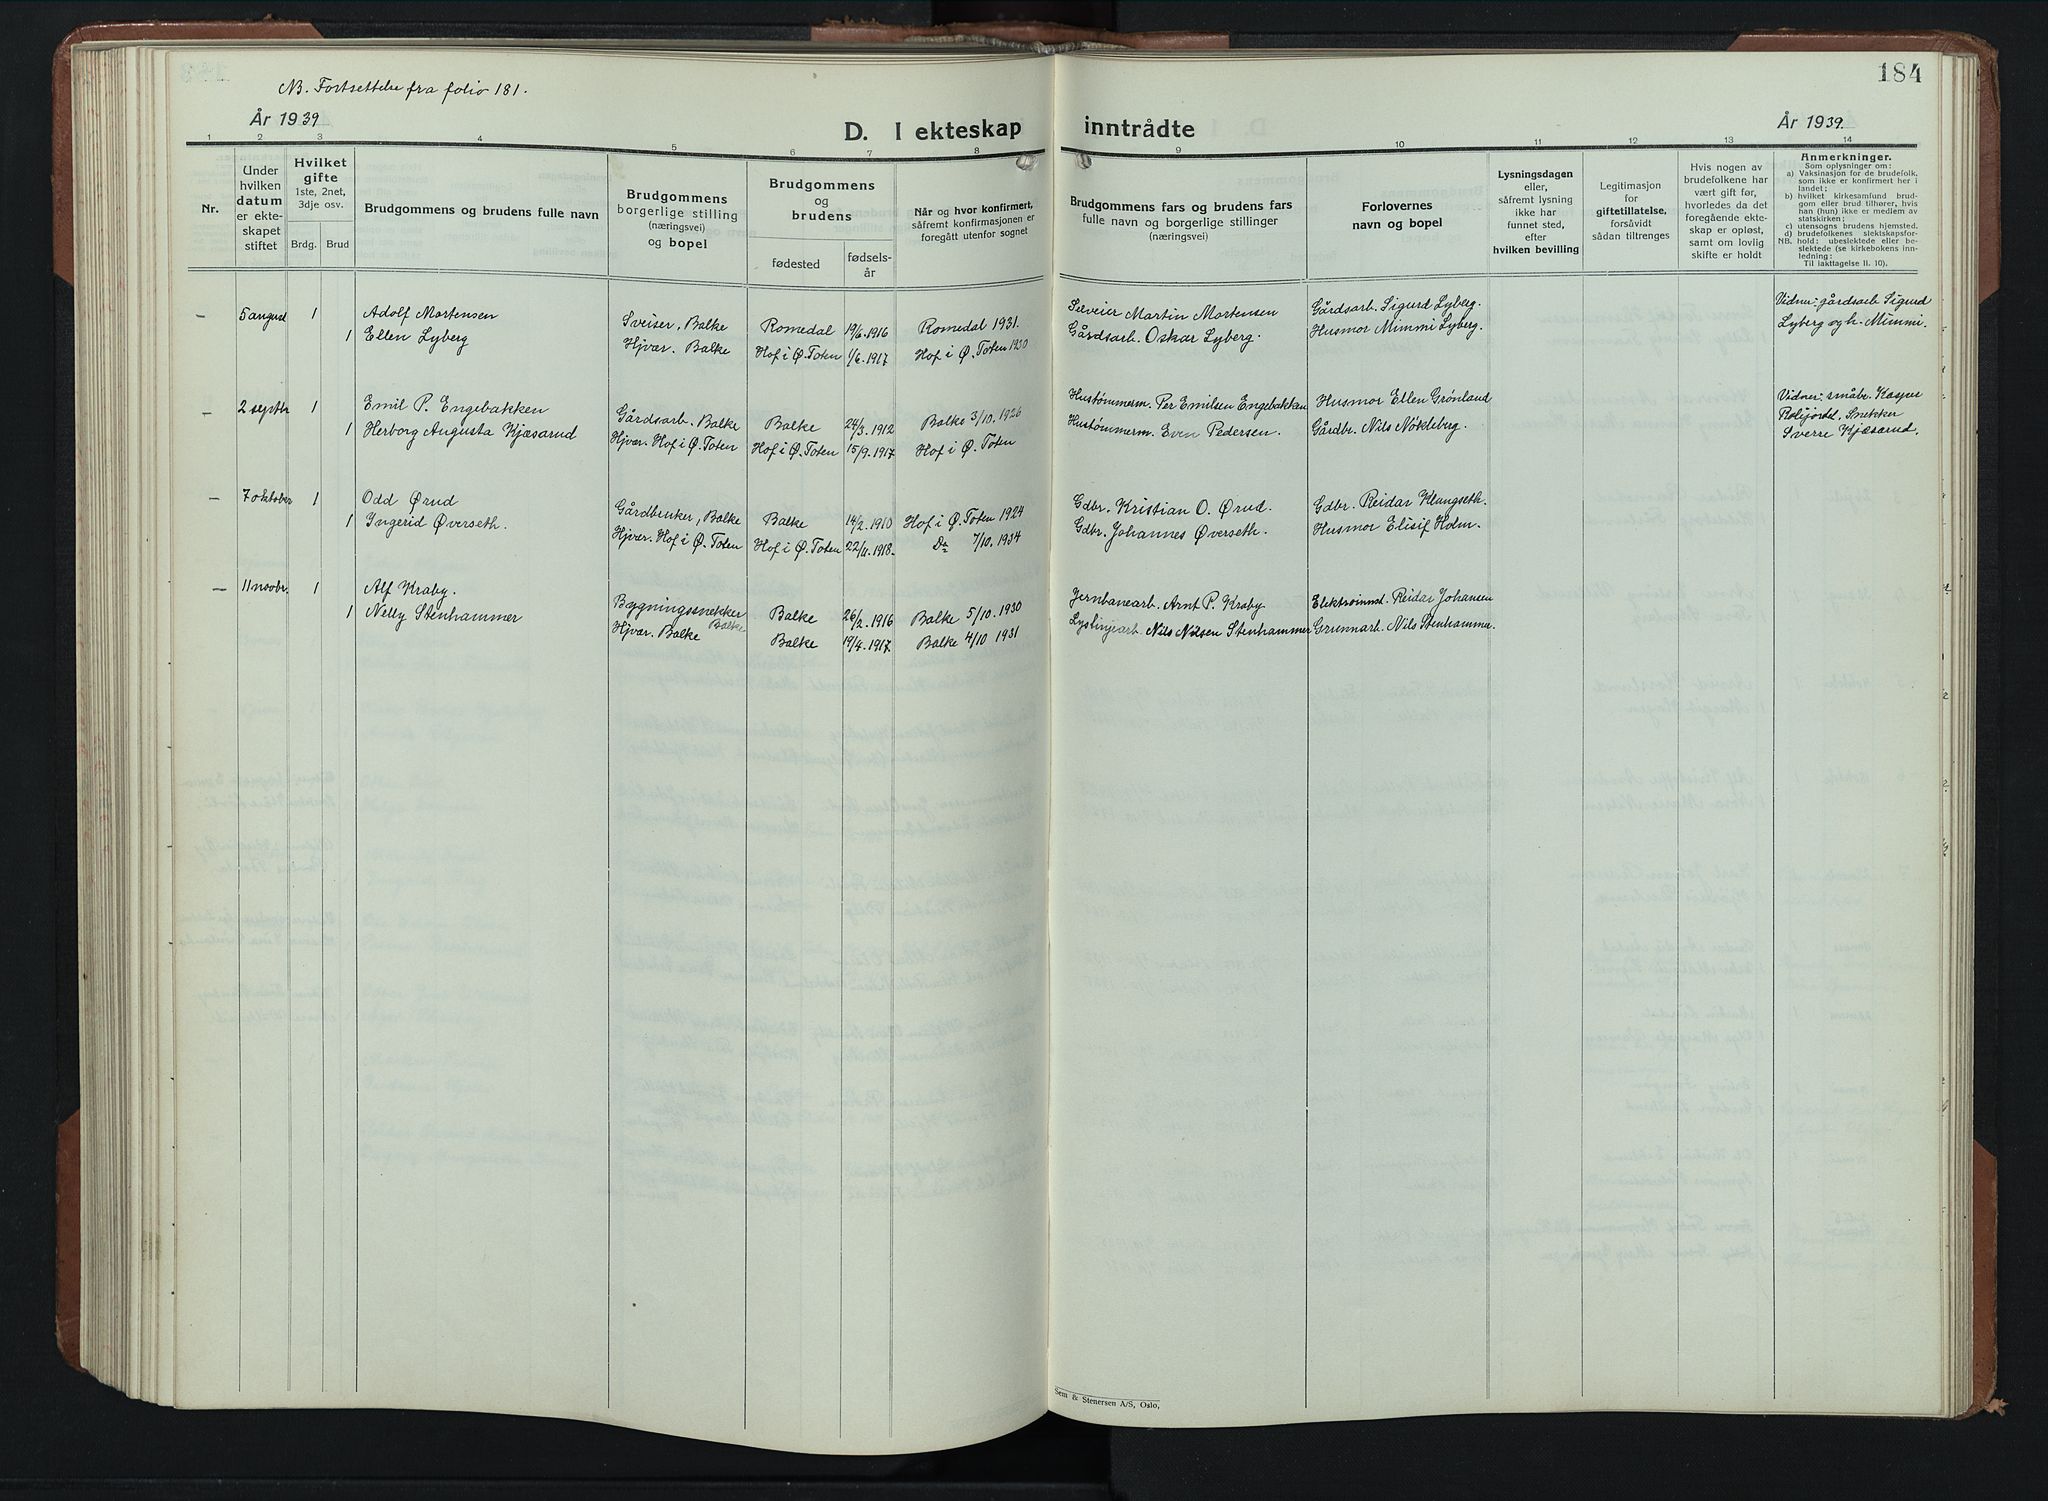 184
NB. Fortsettelse fra folio 181.
År 1939
D. I ekteskap inntrådte
År 1939.
1 2 3 4 5 6 7 8 9 10 11 12 13 14
Nr.
Under
hvilken
datum
er ekte-
skapet
stiftet
Hvilket
gifte
1ste, 2net,
3dje osv.
Brdg. Brud
Brudgommens og brudens fulle navn
Brudgommens
borgerlige stilling
(næringsvei)
og bopel
Brudgommens
og
brudens
fødested
fødsels-
år
Når og hvor konfirmert,
såfremt konfirmasjonen er
foregått utenfor sognet
Brudgommens fars og brudens fars
fulle navn og borgerlige stillinger
(næringsvei)
Forlovernes
navn og bopel
Lysningsdagen
eller,
såfremt lysning
ikke har
funnet sted,
efter
hvilken bevilling
Legitimasjon
for
giftetillatelse,
forsåvidt
sådan tiltrenges
Hvis nogen av
brudefolkene har
vært gift før,
hvorledes da det
foregående ekte-
skap er opløst,
samt om lovlig
skifte er holdt
Anmerkninger.
Som oplysninger om:
a) Vaksinasjon for de brudefolk,
som ikke er konfirmert her i
landet;
b) hvilket kirkesamfund brud-
gom eller brud tilhører, hvis
han (hun) ikke er medlem av
statskirken;
c) utensogns brudens hjemsted.
d) brudefolkenes slektskapsfor-
NB. hold: ubeslektede eller be-
slektede (se kirkebokens inn-
ledning:
Til iakttagelse II. 10).
– 5 august 1 Adolf Mortensen Sveiser, Balke Romedal 19/6.1916 Romedal 1931. Selveier Martin Mortensen Gårdsarb. Sigurd Lyberg. Vidner: gårdsarb Sigurd
1 Ellen Lyberg Hjvær. Balke Hof i Ø. Toten 1/6.1917 Hof i Ø. Toten 1930 Gårdsarb. Oskar Lyberg. Husmor Mimmi Lyberg. Lyberg og h. Mimmi.
– 2 septbr 1 Emil P. Engebakken Gårdsarb. Balke Balke 24/3.1912 Balke 3/10.1926 Hustømmerm. Per Emilsen Engebakken Husmor Ellen Grønland Vidner: småbr. Kasper
1 Herborg Augusta Kjæsarud Hjvær. Hof i Ø. Toten Hof i Ø. Toten 15/9.1917 Hof i Ø. Toten Hustømmerm. Even Pedersen. Gårdbr. Nils Nökleberg. Snekker
Sverre Kjæsarud.
– 7 oktober 1 Odd Ørud Gårdbruker, Balke Balke 14/2.1910 Hof i Ø. Toten 1924 Gdbr. Kristian O. Ørud. Gdbr. Reidar Klungseth.
1 Ingerid Øverseth. Hjvær. Hof i Ø. Toten Hof i Ø. Toten 22/11.1918. Do 7/10.1934 Gdbr. Johannes Øverseth. Husmor Elisif Holm.
– 11 novbr. 1 Alf Kraby. Bygningssnekker Balke Balke 26/2.1916 Balke 5/10.1930 Jernbanearb. Arnt P. Kraby Elektroinnst. Reidar Johansen
1 Nelly Stenhammer Hjvær. Balke Balke 19/4.1917. Balke 4/10 1931 Lyslinjearb. Nils Nilsen Stenhammer Grunnarb. Nils Stenhammer.
Sem & Stenersen A/S, Oslo.